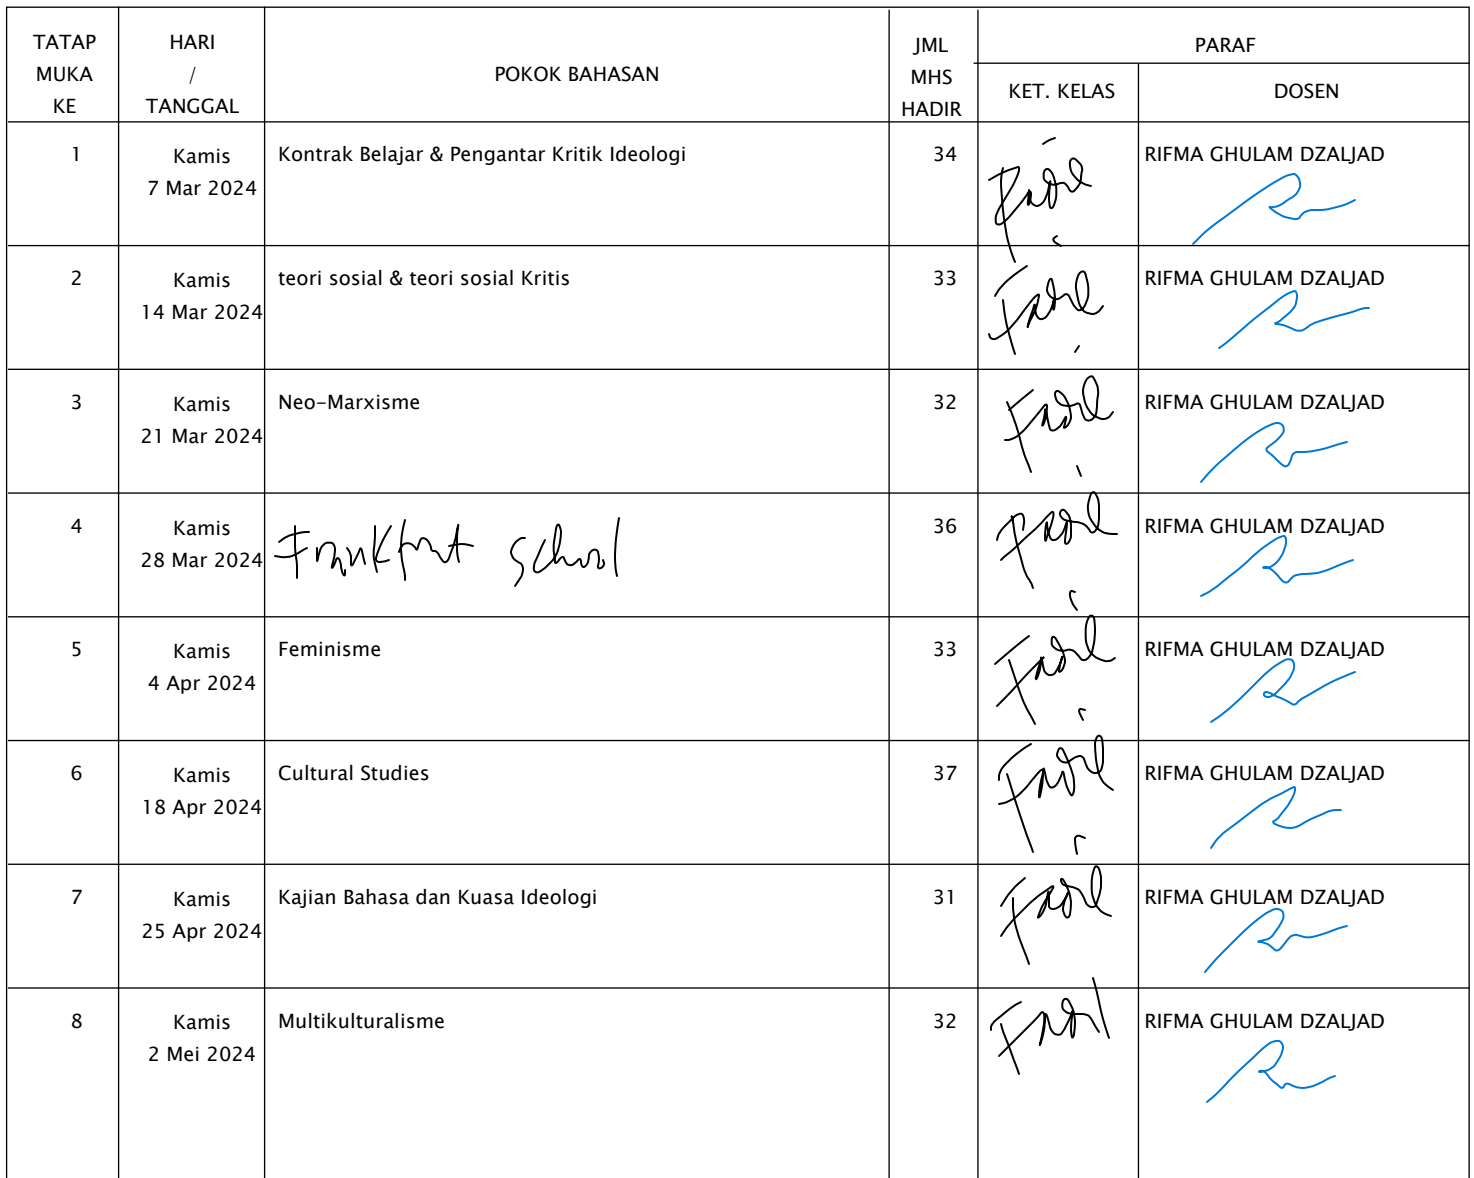 TATAP MUKA KE
HARI / TANGGAL
POKOK BAHASAN
JML MHS HADIR
PARAF
KET. KELAS
DOSEN
1
Kamis
7 Mar 2024
Kontrak Belajar & Pengantar Kritik Ideologi
34
RIFMA GHULAM DZALJAD
2
Kamis
14 Mar 2024
teori sosial & teori sosial Kritis
33
RIFMA GHULAM DZALJAD
3
Kamis
21 Mar 2024
Neo-Marxisme
32
RIFMA GHULAM DZALJAD
4
Kamis
28 Mar 2024
Frankfurt School
36
RIFMA GHULAM DZALJAD
5
Kamis
4 Apr 2024
Feminisme
33
RIFMA GHULAM DZALJAD
6
Kamis
18 Apr 2024
Cultural Studies
37
RIFMA GHULAM DZALJAD
7
Kamis
25 Apr 2024
Kajian Bahasa dan Kuasa Ideologi
31
RIFMA GHULAM DZALJAD
8
Kamis
2 Mei 2024
Multikulturalisme
32
RIFMA GHULAM DZALJAD